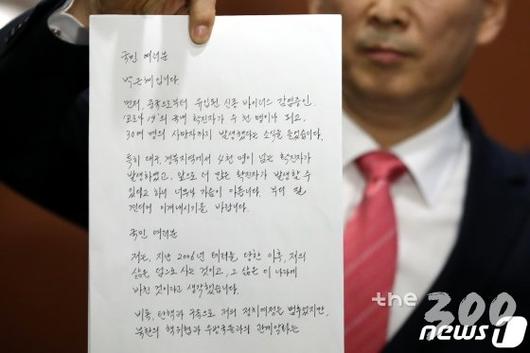 국민 여러분
박근혜입니다.
먼저, 중국으로부터 유입된 신종 바이러스 감염증인
'코로나 19'의 국내 확진자가 수 천 명이나 되고,
30여 명의 사망자까지 발생했다는 소식을 들었습니다.
특히 대구, 경북지역에서 4천 명이 넘는 확진자가
발생하였고, 앞으로 더 많은 확진자가 발생할 수
있다고 하니 너무나 가슴이 아픕니다. 부디 잘
견디어 이겨내시기를 바랍니다.
국민 여러분
저는, 지난 2006년 테러를 당한 이후, 저의
삶은 덤으로 사는 것이고, 그 삶은 이 나라에
바친 것이라고 생각했습니다.
비록, 탄핵과 구속으로 저의 정치여정은 멈추었지만,
북한의 핵위협과 우방국들과의 관계악화는
the 300
news1